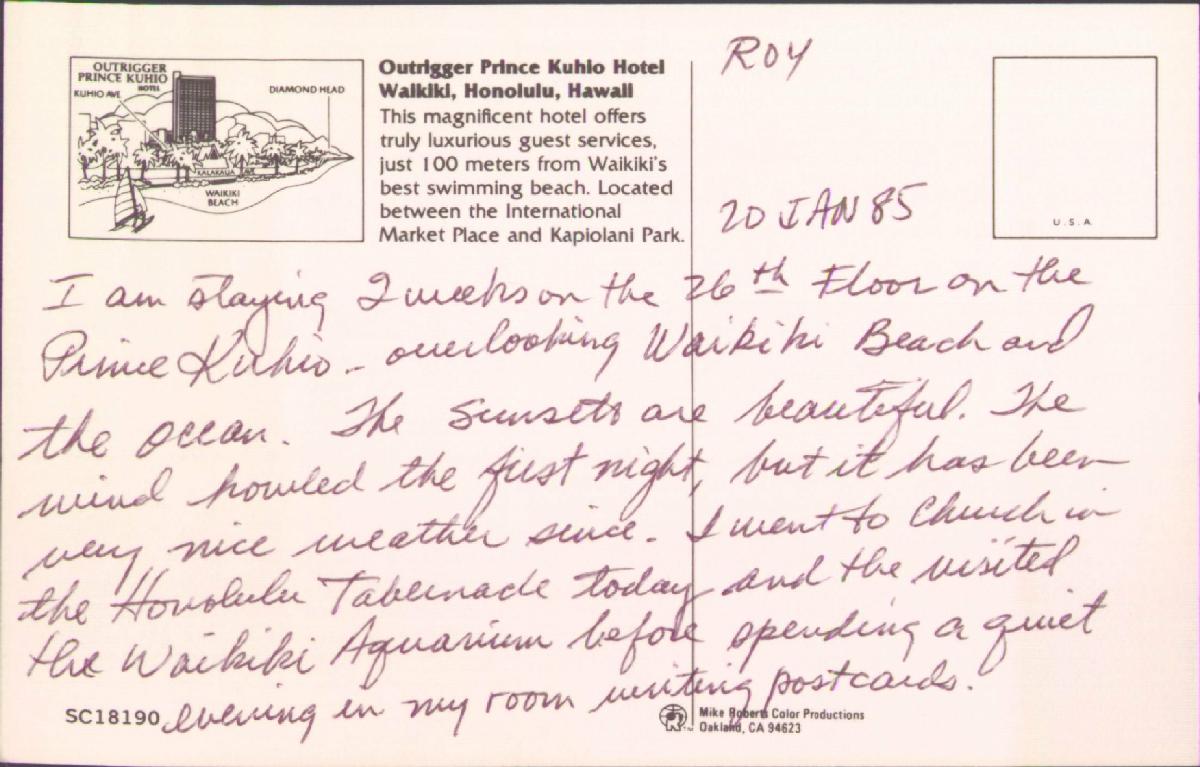 OUTRIGGER
PRINCE KUHIO
HOTEL
KUHIO AVE
DIAMOND HEAD
KALAKAUA AVE
WAIKIKI
BEACH
Outrigger Prince Kuhio Hotel
Waikiki, Honolulu, Hawaii
This magnificent hotel offers
truly luxurious guest services,
just 100 meters from Waikiki's
best swimming beach. Located
between the International
Market Place and Kapiolani Park.
ROY
20 JAN 85
U.S.A.
I am staying 2 weeks on the 26th Floor on the
Prince Kuhio - overlooking Waikiki Beach and
the ocean. The sunsets are beautiful. The
wind howled the first night, but it has been
very nice weather since. I went to Church in
the Honolulu Tabernacle today and the visited
the Waikiki Aquarium before spending a quiet
evening in my room writing postcards.
SC18190
Mike Roberts Color Productions
Oakland, CA 94623